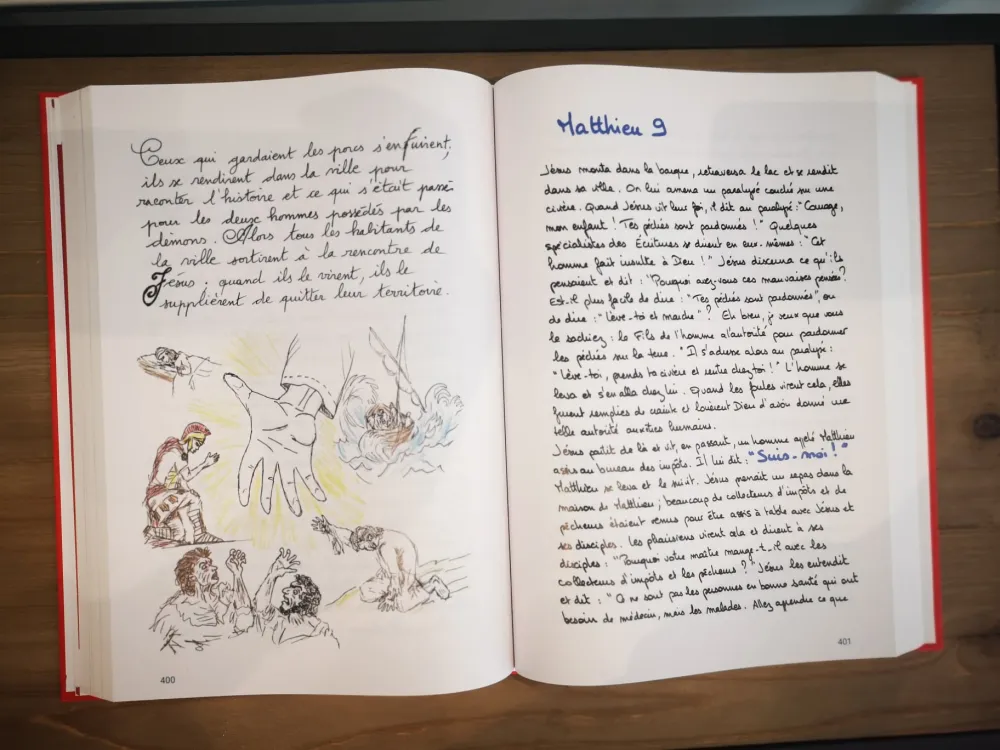 Ceux qui gardaient les porcs s'enfuirent,
ils se rendirent dans la ville pour
raconter l'histoire et ce qui s'était passé
pour les deux hommes possédés par les
démons. Alors tous les habitants de
la ville sortirent à la rencontre de
Jésus. quand ils le virent, ils le
supplièrent de quitter leur territoire.
400
Matthieu 9
Jésus monta dans la barque, retraversa le lac et se rendit
dans sa ville. On lui amena un paralysé couché sur une
civière. Quand Jésus vit leur foi, il dit au paralysé : "Courage,
mon enfant ! Tes péchés sont pardonnés !" Quelques
spécialistes des Écritures se dirent en eux-mêmes : "Cet
homme fait insulte à Dieu !" Jésus discerna ce qu'ils
pensaient et dit : "Pourquoi avez-vous ces mauvaises pensées ?
Est-il plus facile de dire : "Tes péchés sont pardonnés", ou
de dire : "Lève-toi et marche" ? Eh bien, je veux que vous
le sachiez : le Fils de l'homme a l'autorité pour pardonner
les péchés sur la terre. "Il s'adresse alors au paralysé :
"Lève-toi, prends ta civière et rentre chez toi !" L'homme se
leva et s'en alla chez lui. Quand les foules virent cela, elles
furent remplies de crainte et louèrent Dieu d'avoir donné une
telle autorité aux êtres humains.
Jésus partit de là et vit, en passant, un homme appelé Matthieu
assis au bureau des impôts. Il lui dit : "Suis-moi !"
Matthieu se leva et le suivit. Jésus prenait un repas dans la
maison de Matthieu ; beaucoup de collecteurs d'impôts et de
pécheurs étaient venus pour être assis à table avec Jésus et
ses disciples. Les pharisiens virent cela et dirent à ses
disciples : "Pourquoi votre maître mange-t-il avec les
collecteurs d'impôts et les pécheurs ?" Jésus les entendit
et dit : "Ce ne sont pas les personnes en bonne santé qui ont
besoin de médecin, mais les malades. Allez apprendre ce que
401